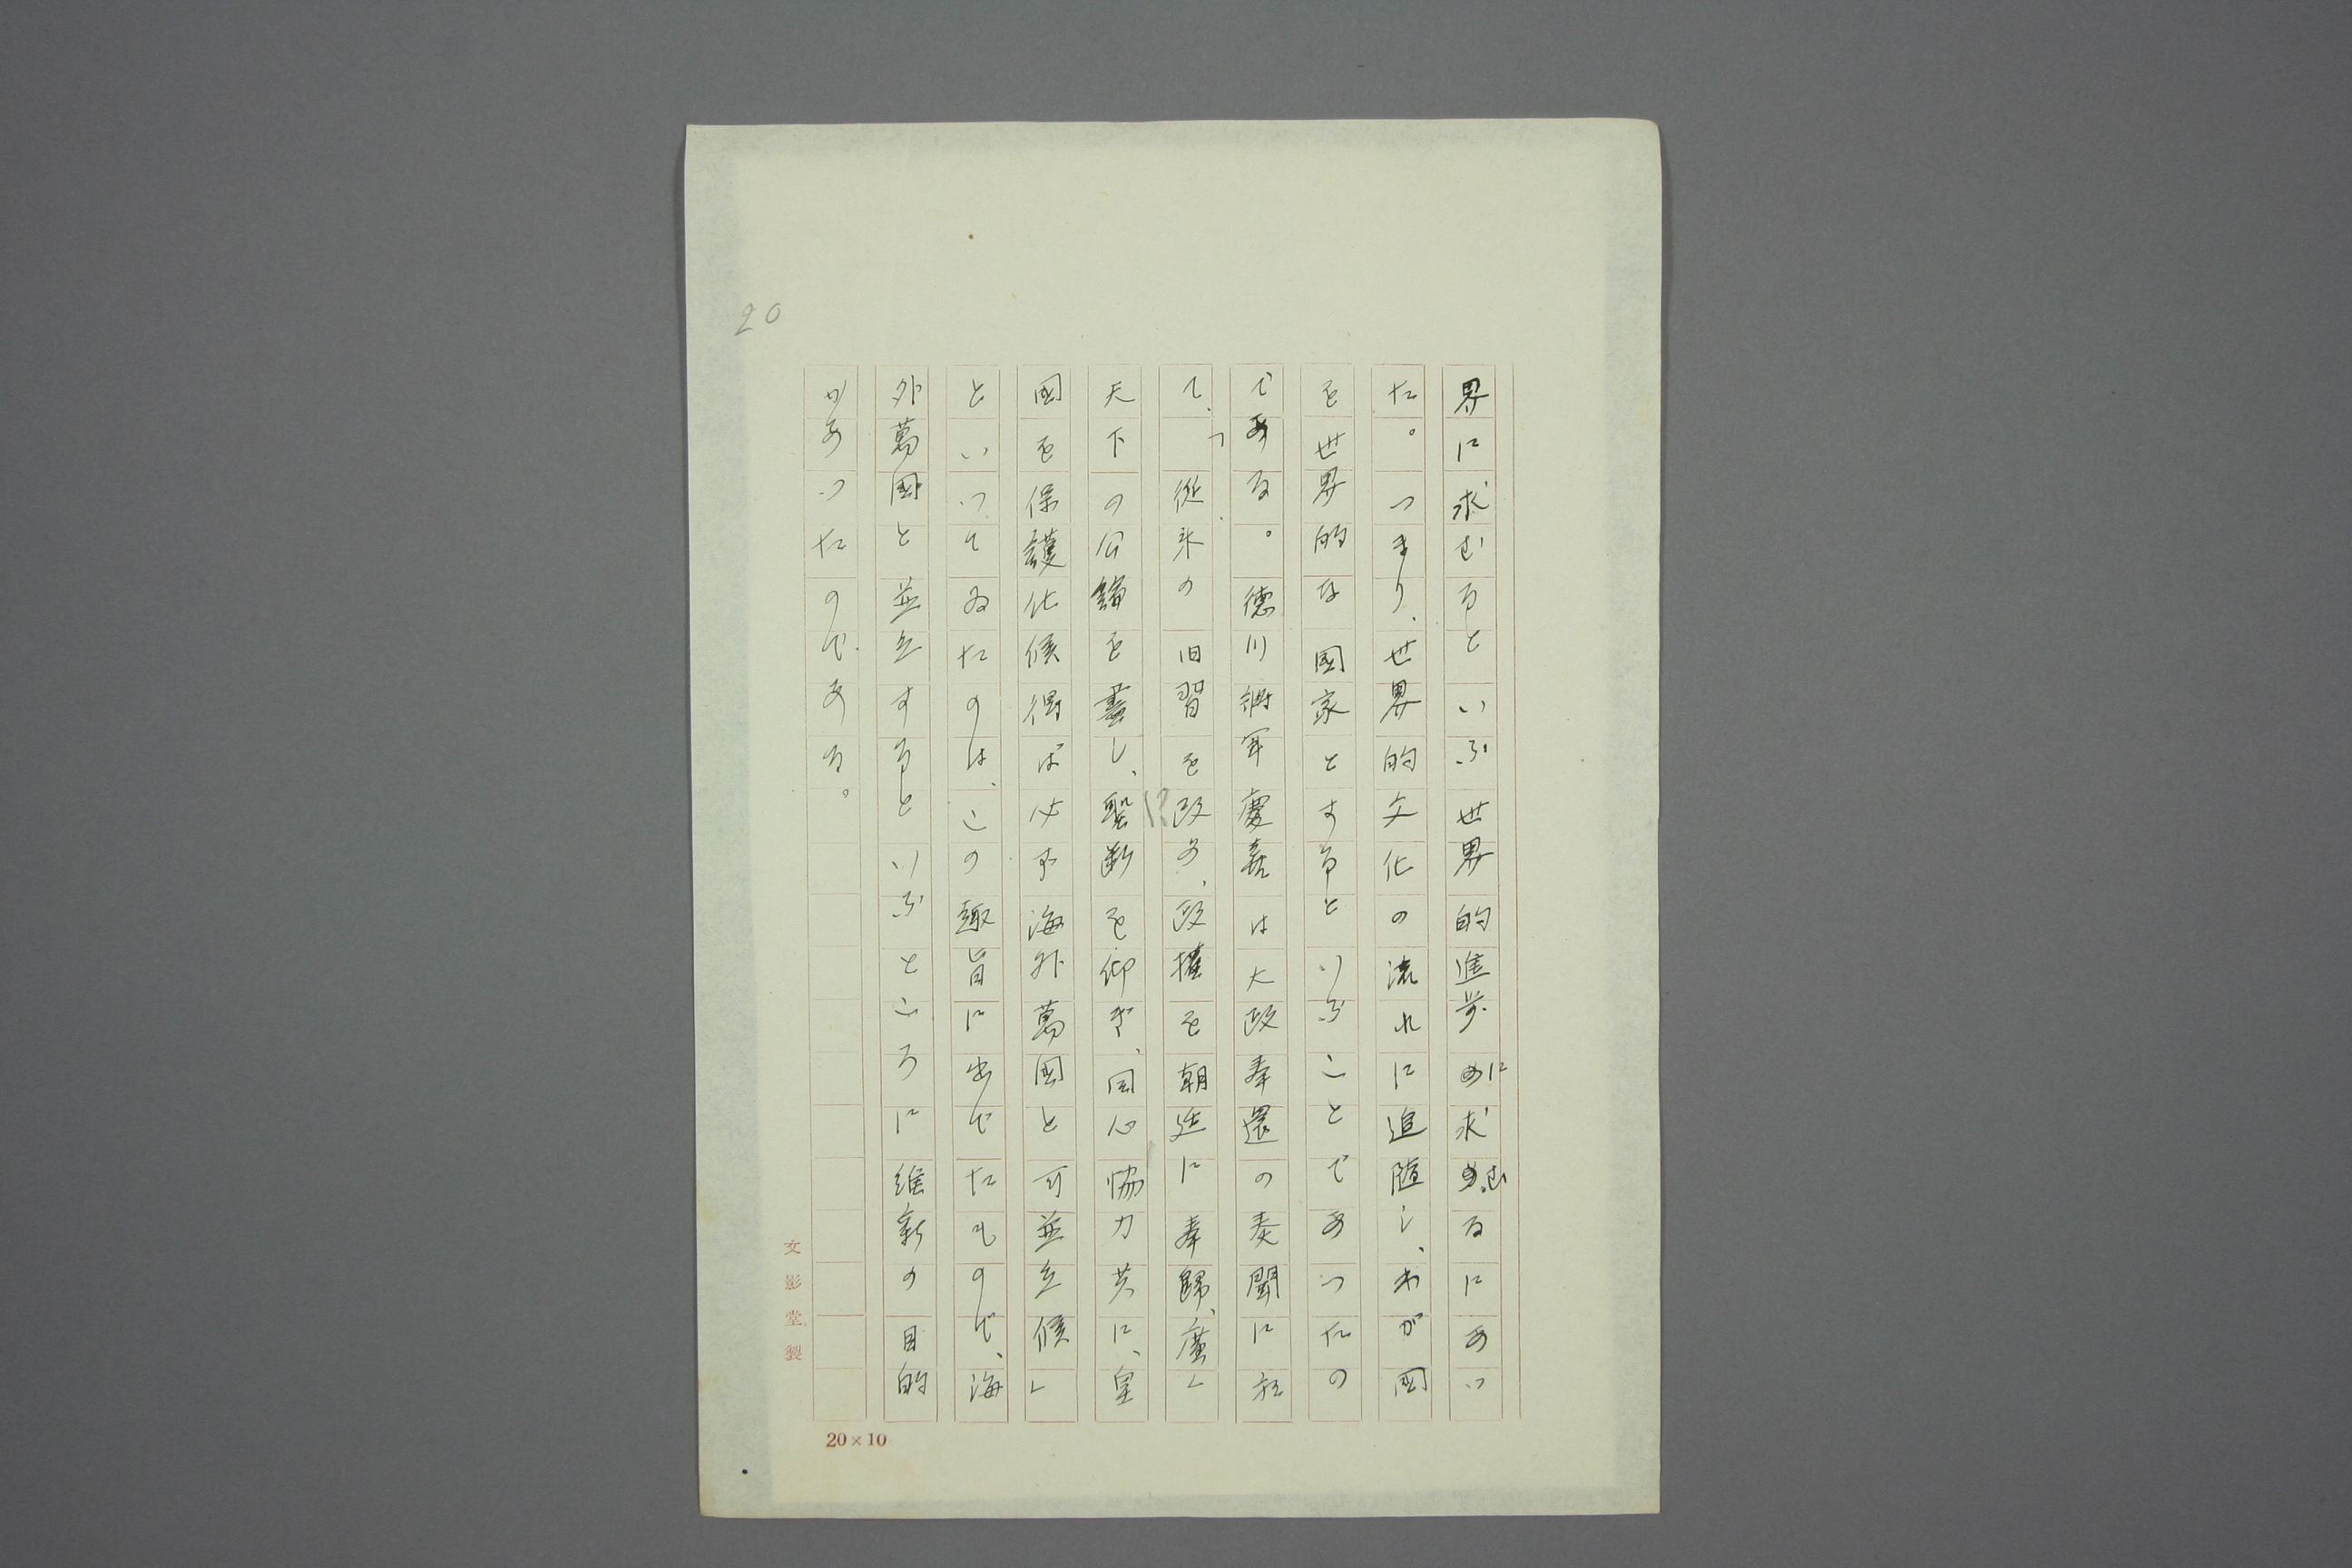 界に求むるといふ世界的進歩に求むるにあつ
た。つまり、世界的文化の流れに追随し、わが国
を世界的な國家とするといふことであつたの
である。德川將軍慶喜は大政奉還の奏聞に於
て、「從来の旧習を改め、政權を朝廷に奉歸、廣く
天下の公論を盡し、聖断を仰ぎ、同心協力共に、皇
國を保護仕候得ば必ず海外萬国と可並立候」
といつてゐたのは、この趣旨に出でたもので、海
外萬國と並立するといふところに維新の目的
があつたのである。
20
文影堂製
20×10